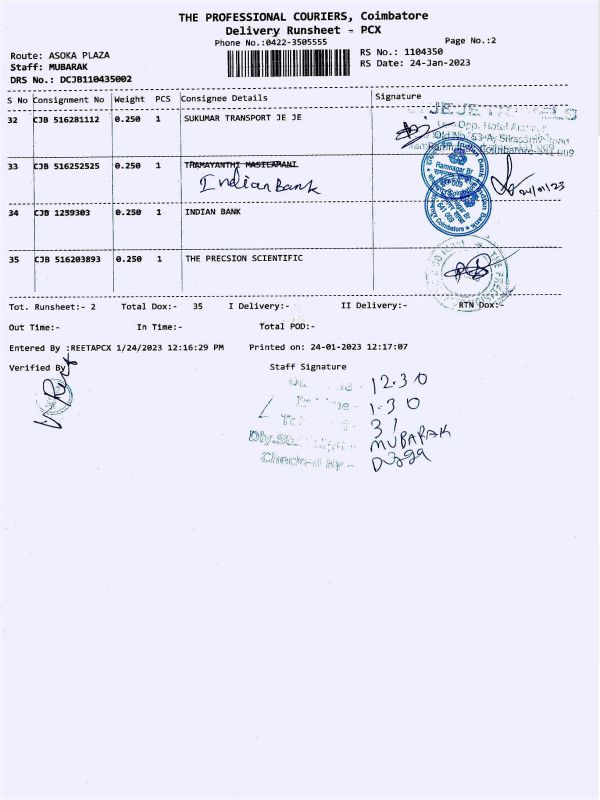 THE PROFESSIONAL COURIERS, Coimbatore
Delivery Runsheet - PCX
Phone No.:0422-3505555 Page No.:2
Route: ASOKA PLAZA RS No.: 1104350
Staff: MUBARAK RS Date: 24-Jan-2023
DRS No.: DCJB110435002
S No Consignment No Weight PCS Consignee Details Signature
32 CJB 516281112 0.250 1 SUKUMAR TRANSPORT JE JE
Opp. Hotel
Coimbatore-641 009
33 CJB 516252525 0.250 1 TRAMAYANTHI MASILAMANI
Indian Bank
Indian Bank
Ramnagar Br
24/01/23
34 CJB 1259303 0.250 1 INDIAN BANK
641 009
Coimbatore
35 CJB 516203893 0.250 1 THE PRECSION SCIENTIFIC
Tot. Runsheet:- 2 Total Dox:- 35 I Delivery:- II Delivery:- RTN Dox:-
Out Time:- In Time:- Total POD:-
Entered By :REETAPCX 1/24/2023 12:16:29 PM Printed on: 24-01-2023 12:17:07
Verified By Staff Signature
12.30
1.30
31
MUBARAK
Checked By -